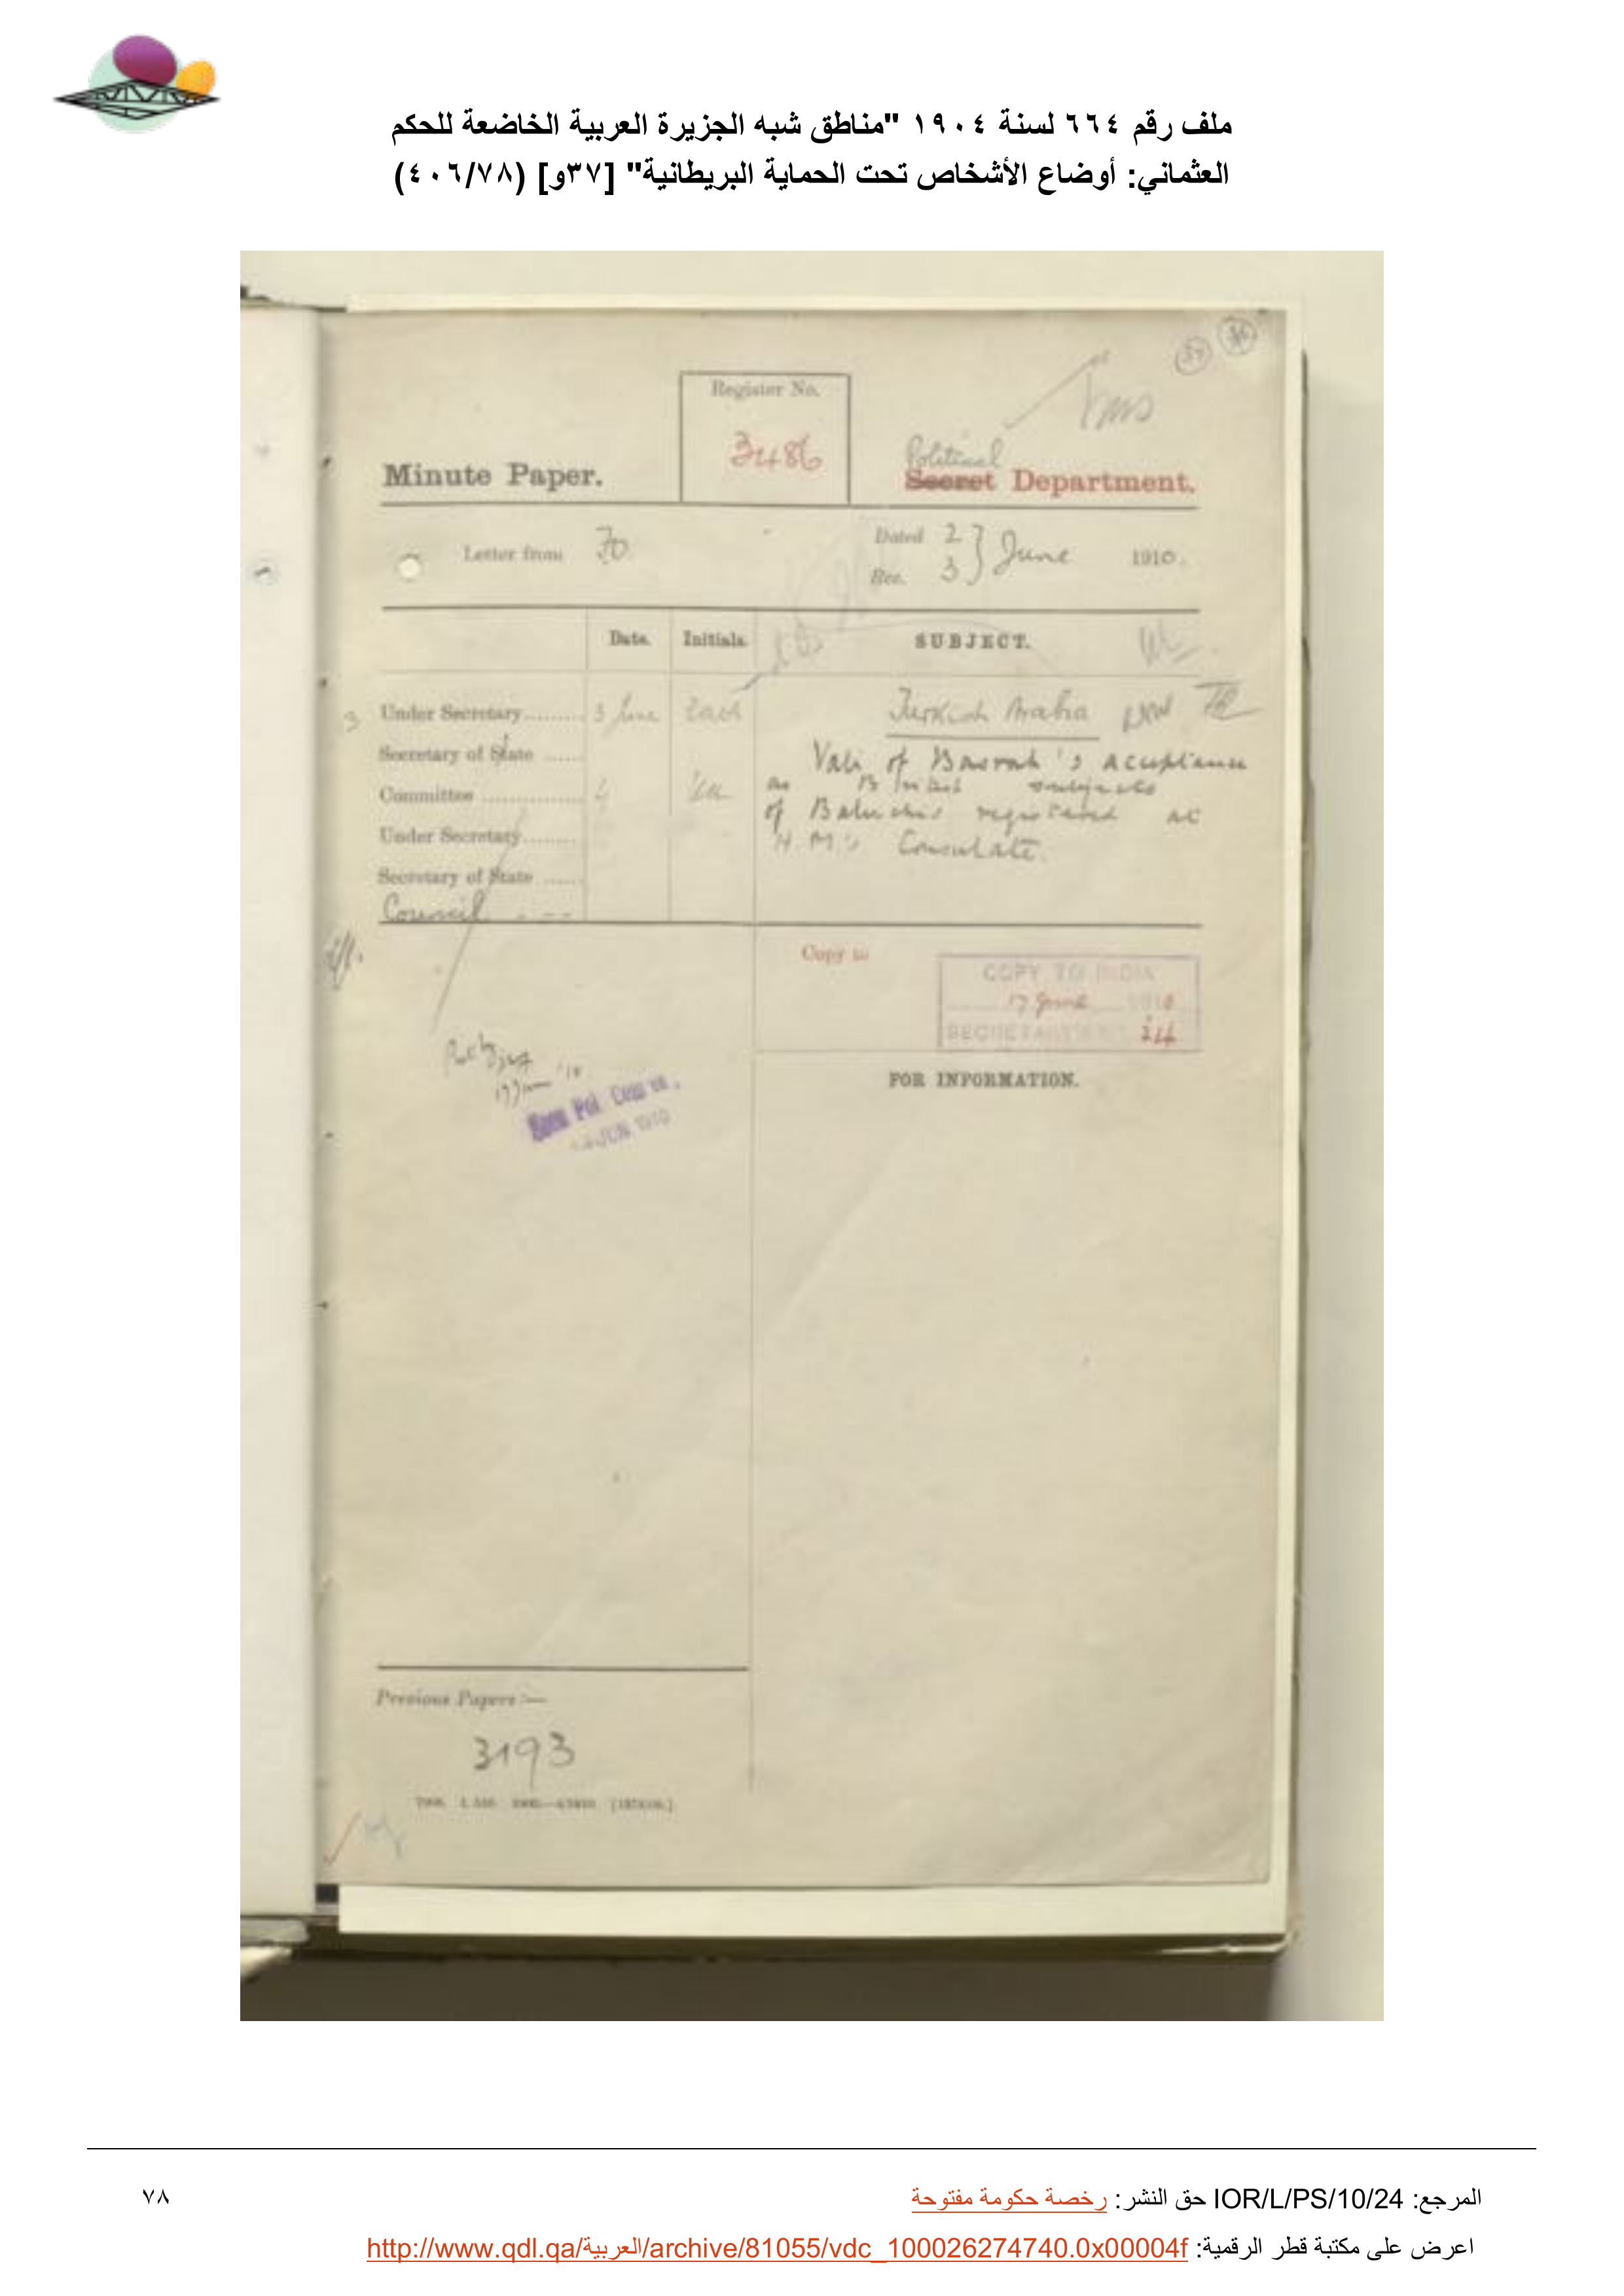 ملف رقم ٦٦٤ لسنة ١٩٠٤ "مناطق شبه الجزيرة العربية الخاضعة للحكم
العثماني: أوضاع الأشخاص تحت الحماية البريطانية" [٣٧و] (٤٠٦/٧٨)
Register No.
3486
Minute Paper.
Political
Secret Department.
Letter from FO.
Dated 2 } June 1910.
Rec. 3
Date. Initials. SUBJECT.
Under Secretary........ 3 June
Turkish Arabia
Secretary of State ......
Vali of Basrah's acceptance
Committee ............... 4
as British subjects
of Baluchis registered at
Under Secretary........
H.M's Consulate.
Secretary of State ......
Council
Copy to
COPY TO INDIA
17 June 1910
SECRETARY'S 24
FOR INFORMATION.
Pol. Com
JUN 1910
Previous Papers :—
3193
المرجع: IOR/L/PS/10/24 حق النشر: رخصة حكومة مفتوحة
٧٨
اعرض على مكتبة قطر الرقمية: http://www.qdl.qa/العربية/archive/81055/vdc_100026274740.0x00004f